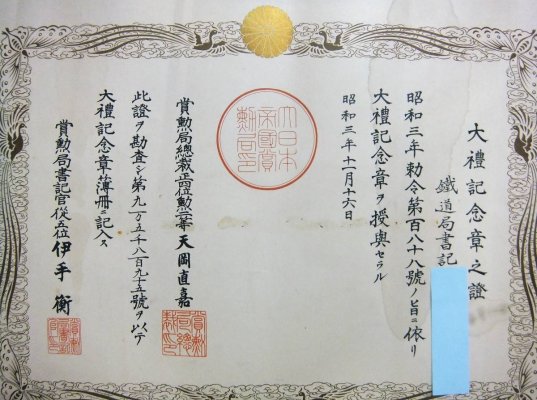 大禮記念章之證
鐵道局書記
昭和三年勅令第百八十八號ノ旨ニ依リ
大禮記念章ヲ授與セラル
昭和三年十一月十六日
大日本
帝國賞
勲局印
賞勲局總裁正三位勲一等天岡直嘉
此證ヲ勘査シ第九万五千八百九十五號ヲ以テ
大禮記念章簿冊ニ記入ス
賞勲局書記官從五位伊手衡